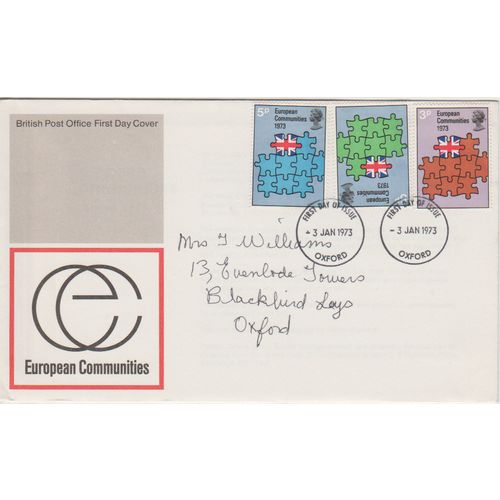 British Post Office First Day Cover
5p European
Communities
1973
European
Communities
1973
3p European
Communities
1973
FIRST DAY OF ISSUE
- 3 JAN 1973
OXFORD
FIRST DAY OF ISSUE
- 3 JAN 1973
OXFORD
Mrs T Williams
13, Evenlode Towers
Blackbird Leys
Oxford
ce
European Communities